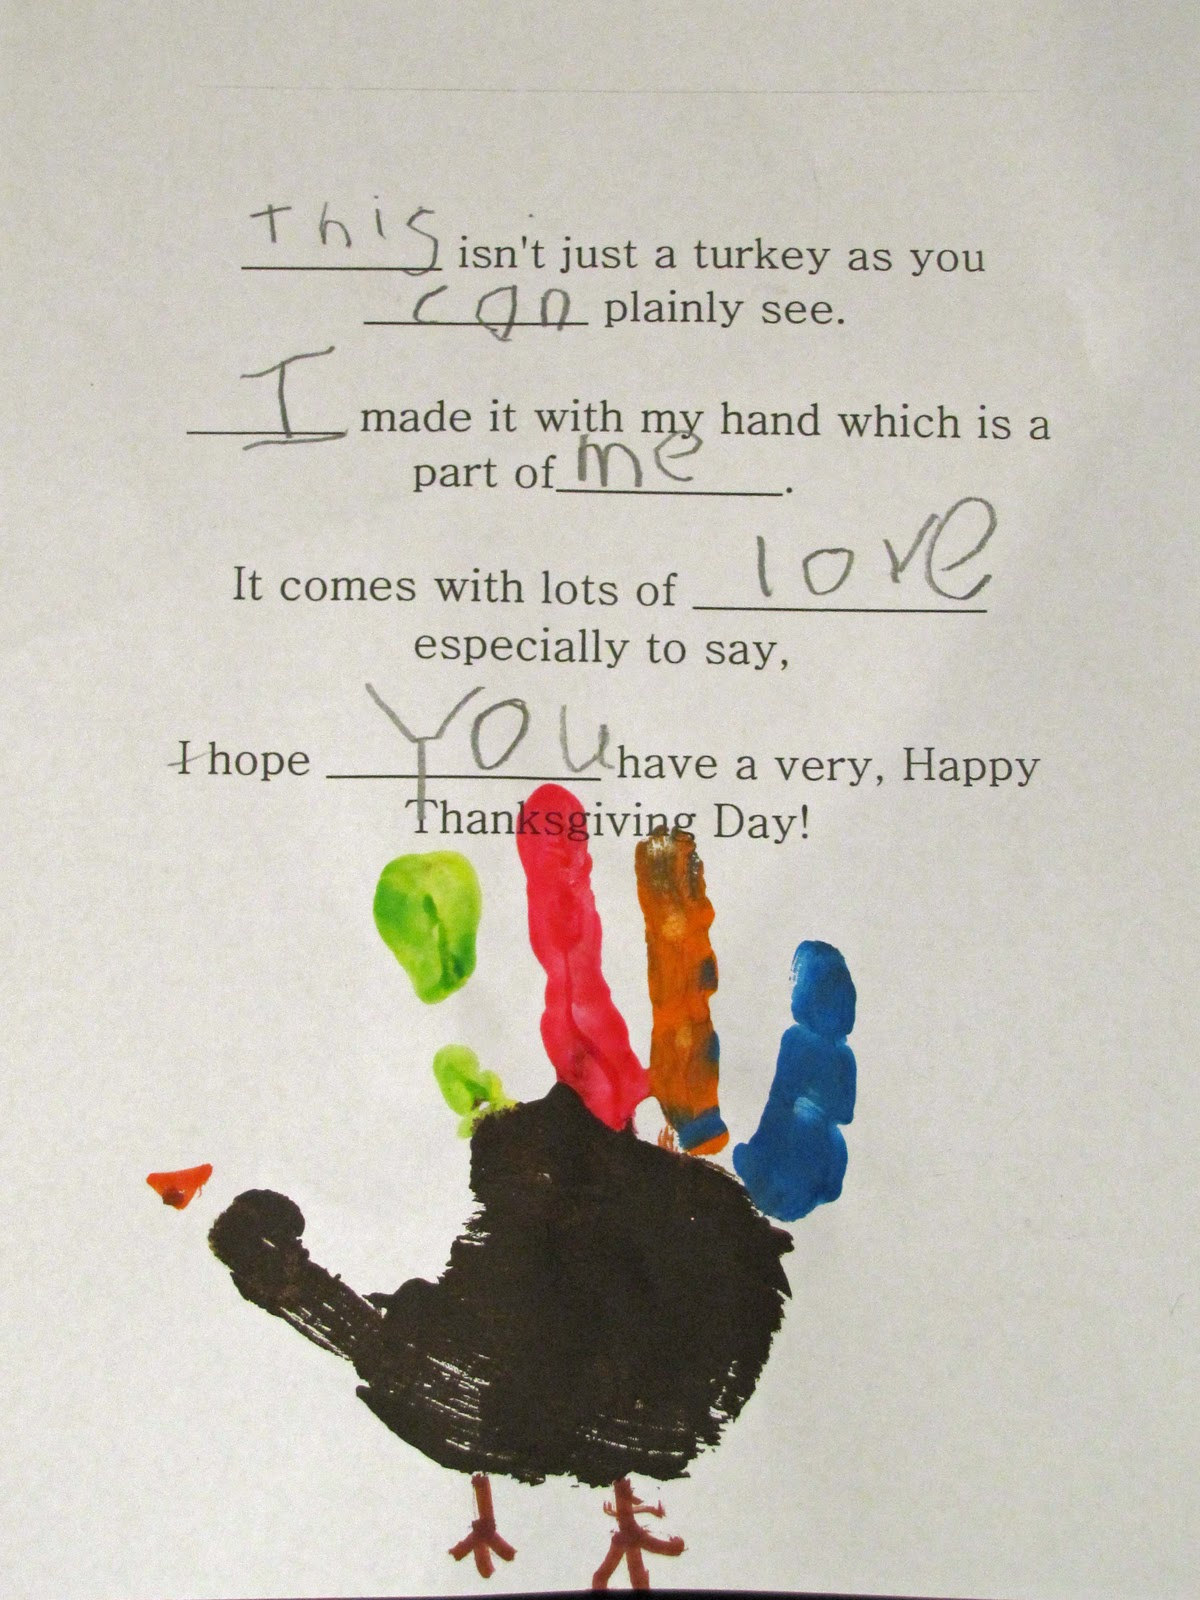 This isn't just a turkey as you
can plainly see.
I made it with my hand which is a
part of me.
It comes with lots of love
especially to say,
I hope You have a very, Happy
Thanksgiving Day!